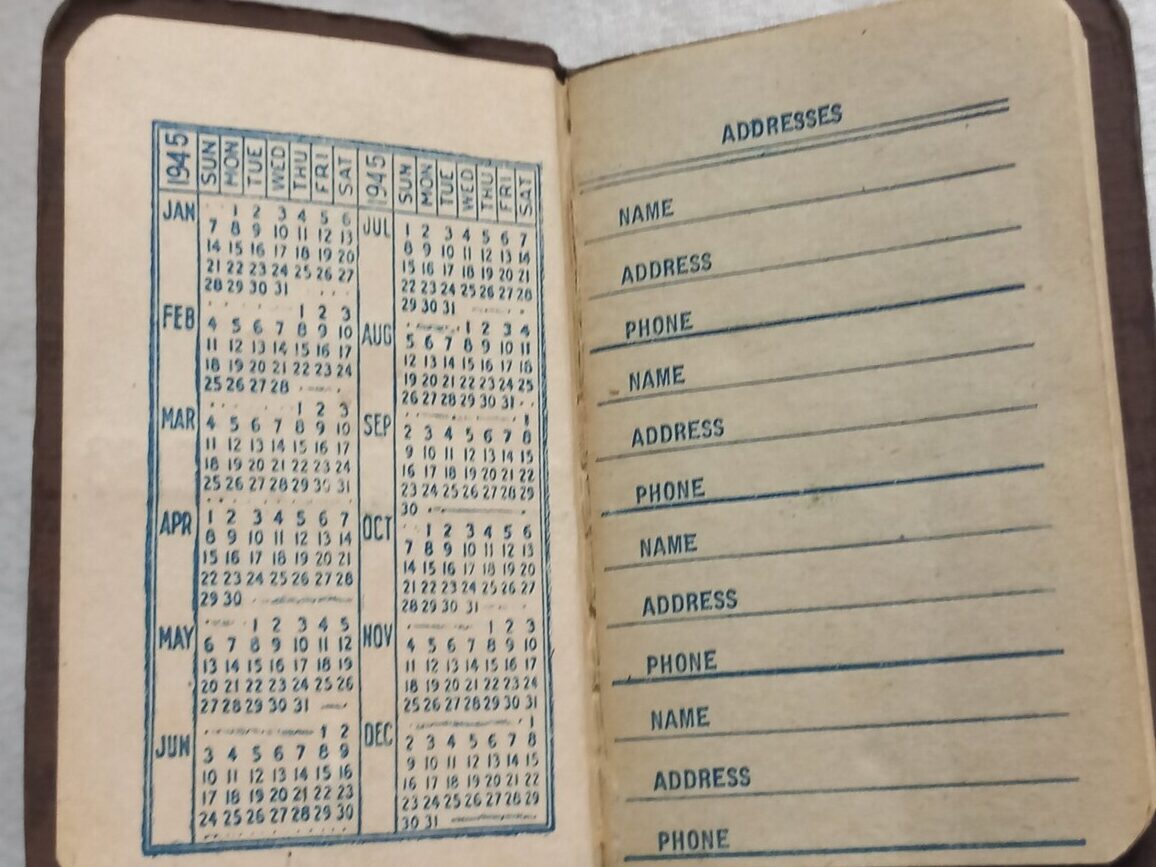 1945 SUN MON TUE WED THU FRI SAT
JAN
1 2 3 4 5 6
7 8 9 10 11 12 13
14 15 16 17 18 19 20
21 22 23 24 25 26 27
28 29 30 31
FEB
1 2 3
4 5 6 7 8 9 10
11 12 13 14 15 16 17
18 19 20 21 22 23 24
25 26 27 28
MAR
1 2 3
4 5 6 7 8 9 10
11 12 13 14 15 16 17
18 19 20 21 22 23 24
25 26 27 28 29 30 31
APR
1 2 3 4 5 6 7
8 9 10 11 12 13 14
15 16 17 18 19 20 21
22 23 24 25 26 27 28
29 30
MAY
1 2 3 4 5
6 7 8 9 10 11 12
13 14 15 16 17 18 19
20 21 22 23 24 25 26
27 28 29 30 31
JUN
1 2
3 4 5 6 7 8 9
10 11 12 13 14 15 16
17 18 19 20 21 22 23
24 25 26 27 28 29 30
1945 SUN MON TUE WED THU FRI SAT
JUL
1 2 3 4 5 6 7
8 9 10 11 12 13 14
15 16 17 18 19 20 21
22 23 24 25 26 27 28
29 30 31
AUG
1 2 3 4
5 6 7 8 9 10 11
12 13 14 15 16 17 18
19 20 21 22 23 24 25
26 27 28 29 30 31
SEP
1
2 3 4 5 6 7 8
9 10 11 12 13 14 15
16 17 18 19 20 21 22
23 24 25 26 27 28 29
30
OCT
1 2 3 4 5 6
7 8 9 10 11 12 13
14 15 16 17 18 19 20
21 22 23 24 25 26 27
28 29 30 31
NOV
1 2 3
4 5 6 7 8 9 10
11 12 13 14 15 16 17
18 19 20 21 22 23 24
25 26 27 28 29 30 31
DEC
1
2 3 4 5 6 7 8
9 10 11 12 13 14 15
16 17 18 19 20 21 22
23 24 25 26 27 28 29
30 31
ADDRESSES
NAME
ADDRESS
PHONE
NAME
ADDRESS
PHONE
NAME
ADDRESS
PHONE
NAME
ADDRESS
PHONE